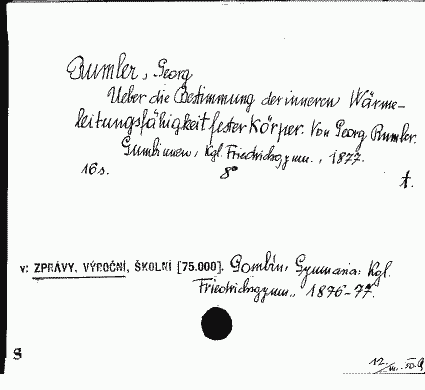 Rumler, Georg
Ueber die Bestimmung der inneren Wärme-
leitungsfähigkeit fester Körper. Von Georg Rumler.
Gumbinnen, Kgl. Friedrichsgymn., 1877.
16 s. 8° t.
v: ZPRÁVY, VÝROČNÍ, ŠKOLNÍ [75.000]. Gombin, Gymnasia: Kgl.
Friedrichsgymn., 1876-77.
S
12.